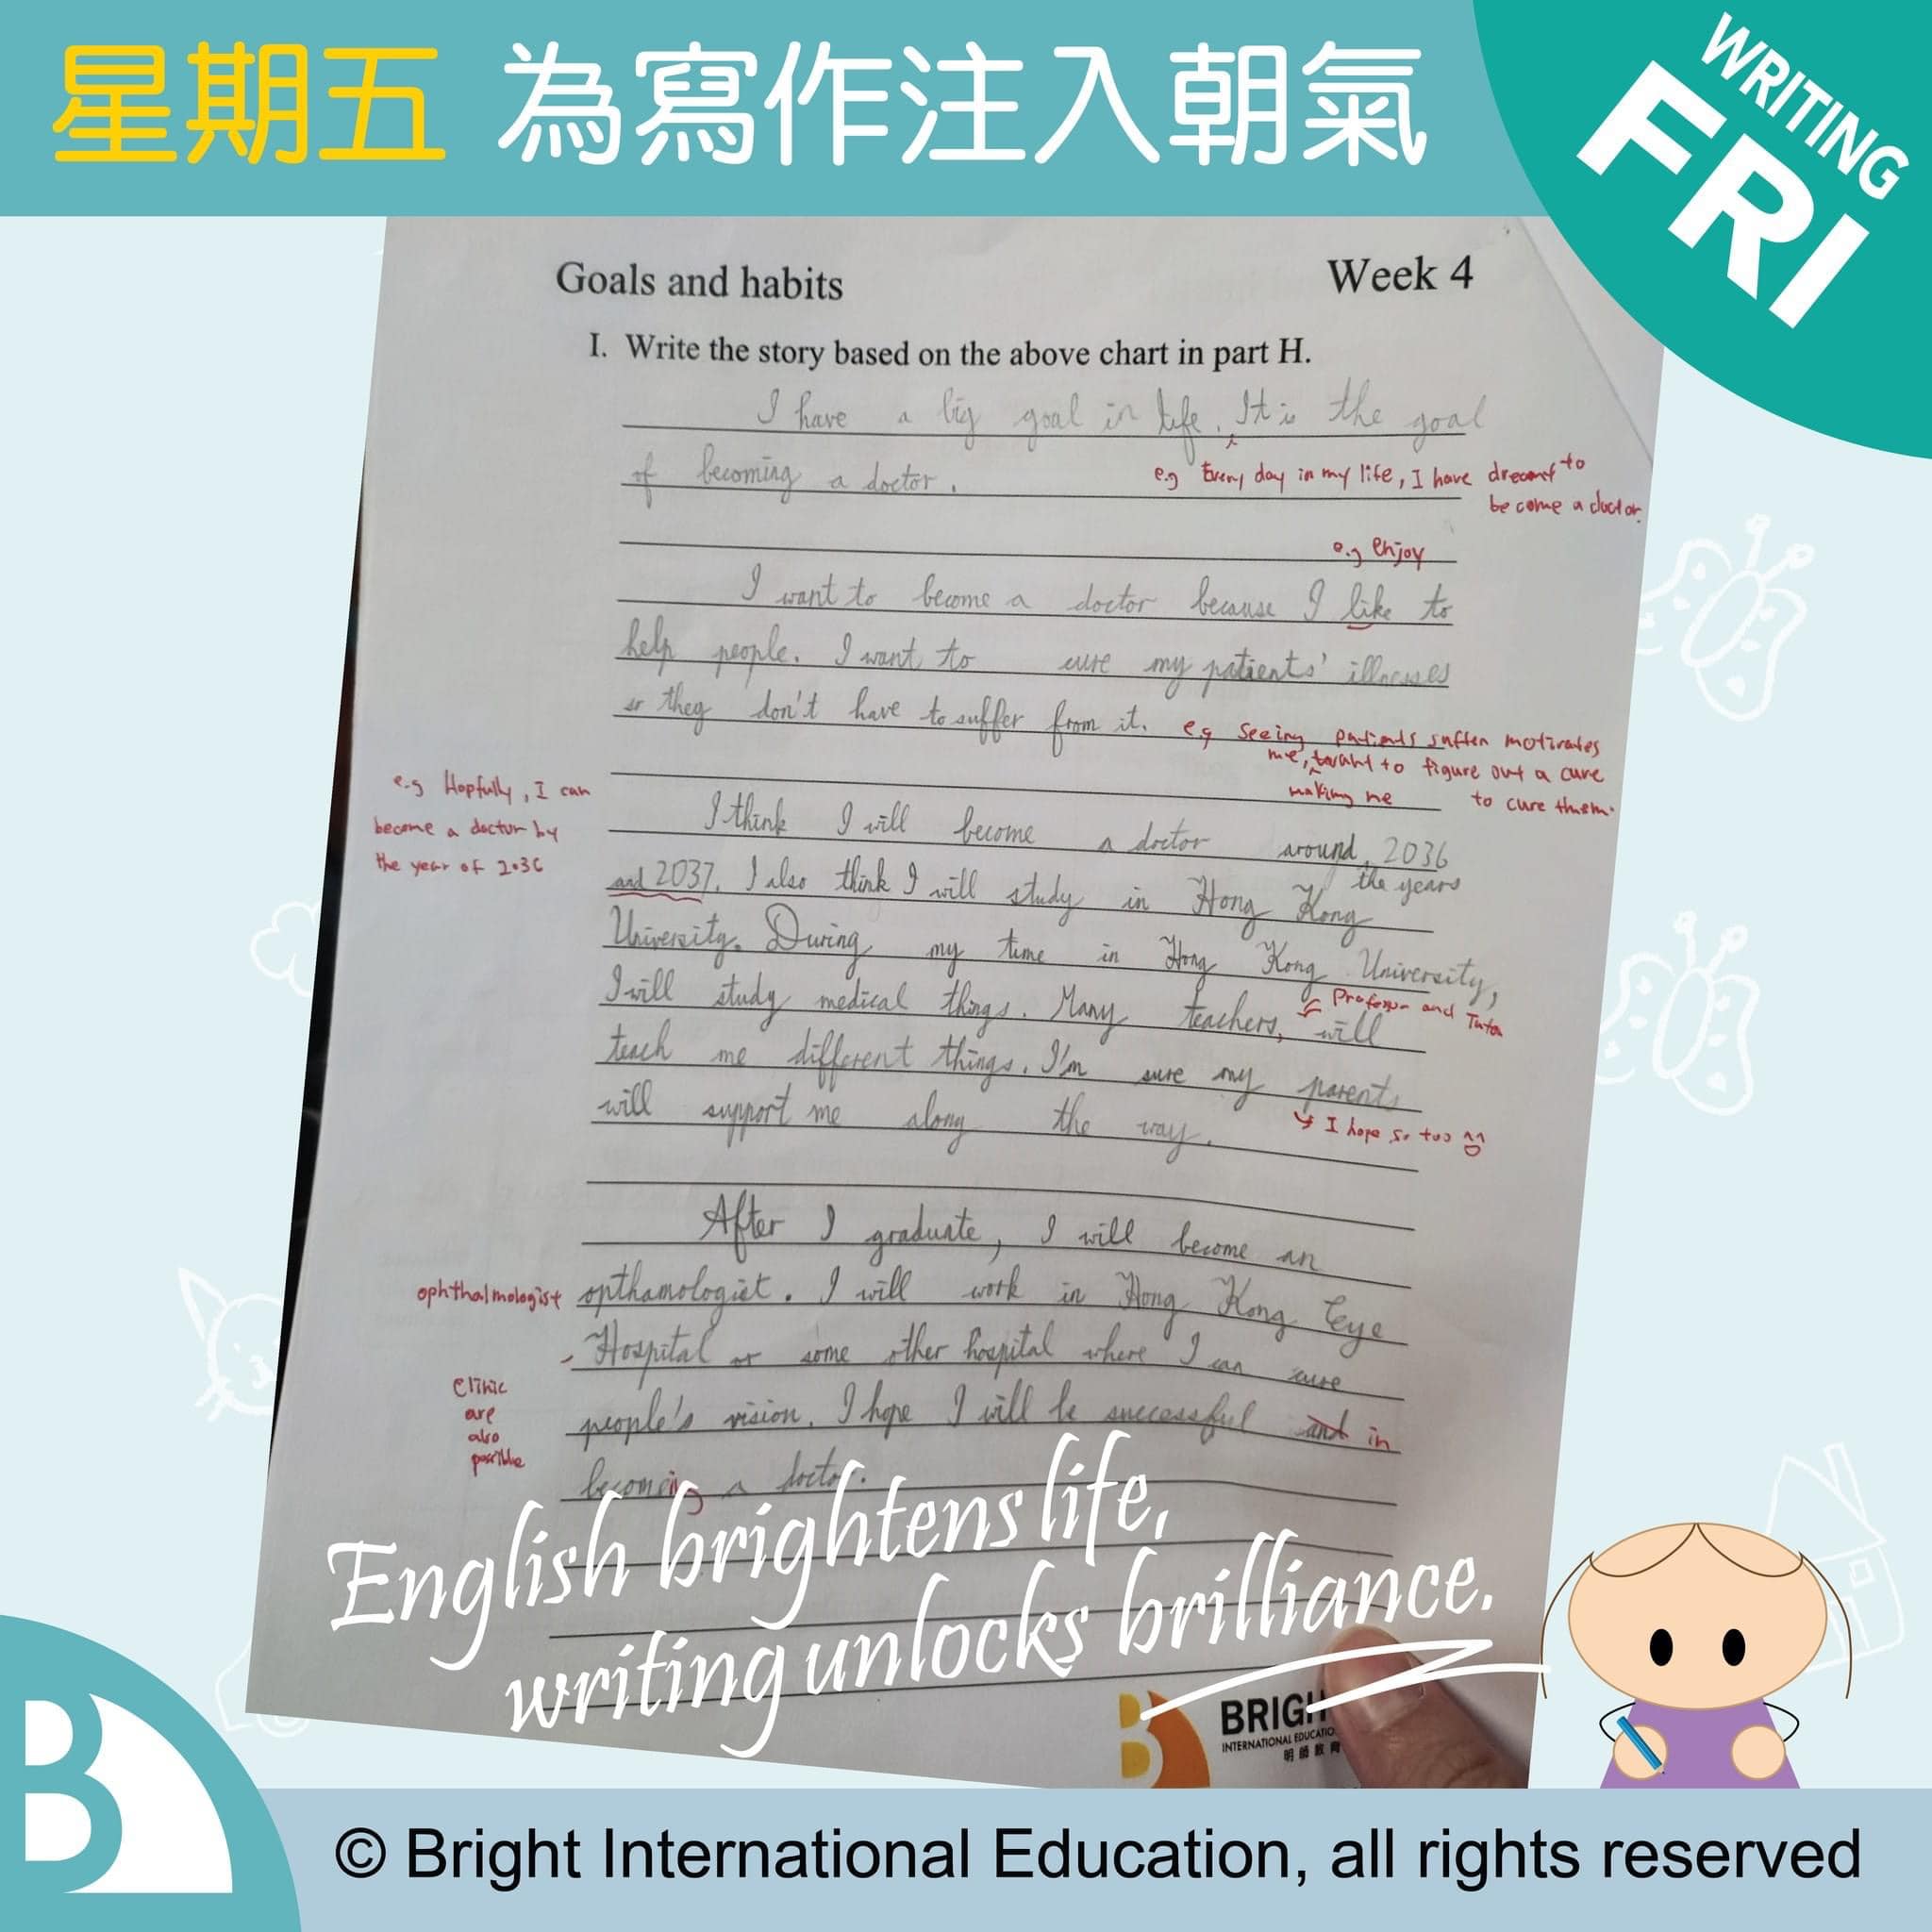 星期五 為寫作注入朝氣
WRITING
FRI
Goals and habits Week 4
I. Write the story based on the above chart in part H.
I have a big goal in life. It is the goal
of becoming a doctor.
e.g Every day in my life, I have dreamt to
become a doctor.
e.g enjoy
I want to become a doctor because I like to
help people. I want to cure my patients' illnesses
so they don't have to suffer from it.
e.g Seeing patients suffer motivates
me, want to figure out a cure
making me to cure them.
e.g Hopfully, I can
become a doctor by
the year of 2036
I think I will become a doctor around 2036
the years
and 2037. I also think I will study in Hong Kong
University. During my time in Hong Kong University,
I will study medical things. Many teachers, will
Professor and Tutor
teach me different things. I'm sure my parents
will support me along the way.
I hope so too
After I graduate, I will become an
ophthalmologist
opthamologist. I will work in Hong Kong Eye
Hospital or some other hospital where I can cure
Clinic
are
also
possible
people's vision. I hope I will be successful and in
becoming a doctor.
English brightens life,
writing unlocks brilliance.
BRIGH
INTERNATIONAL EDUCATIO
明師教育
B
© Bright International Education, all rights reserved